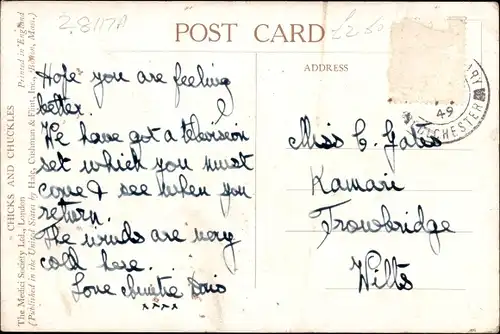 28117A
POST CARD
£2.50
ADDRESS
Hope you are feeling
better.
We have got a television
set which you must
come & see when you
return.
The winds are very
cold here.
Love Auntie Doris
xxxx
Miss C. Gates
Kamari
Trowbridge
Wilts
49
CHESTER
CHICKS AND CHUCKLES
The Medici Society Ltd., London Printed in England
(Published in the United States by Hale, Cushman & Flint, Inc., Boston, Mass.)